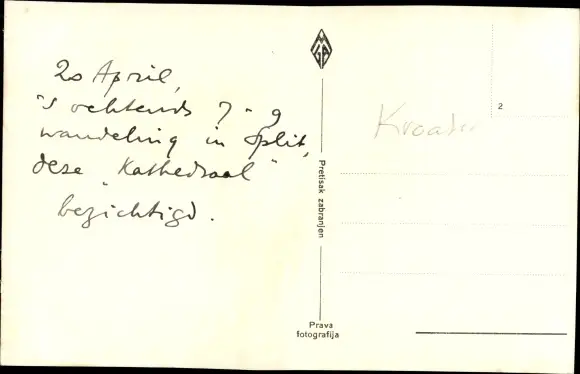 20 April,
's ochtends 7 - 9
wandeling in Split,
deze „Kathedraal"
bezichtigd.
MGA
Pretisak zabranjen
Prava
fotografija
2